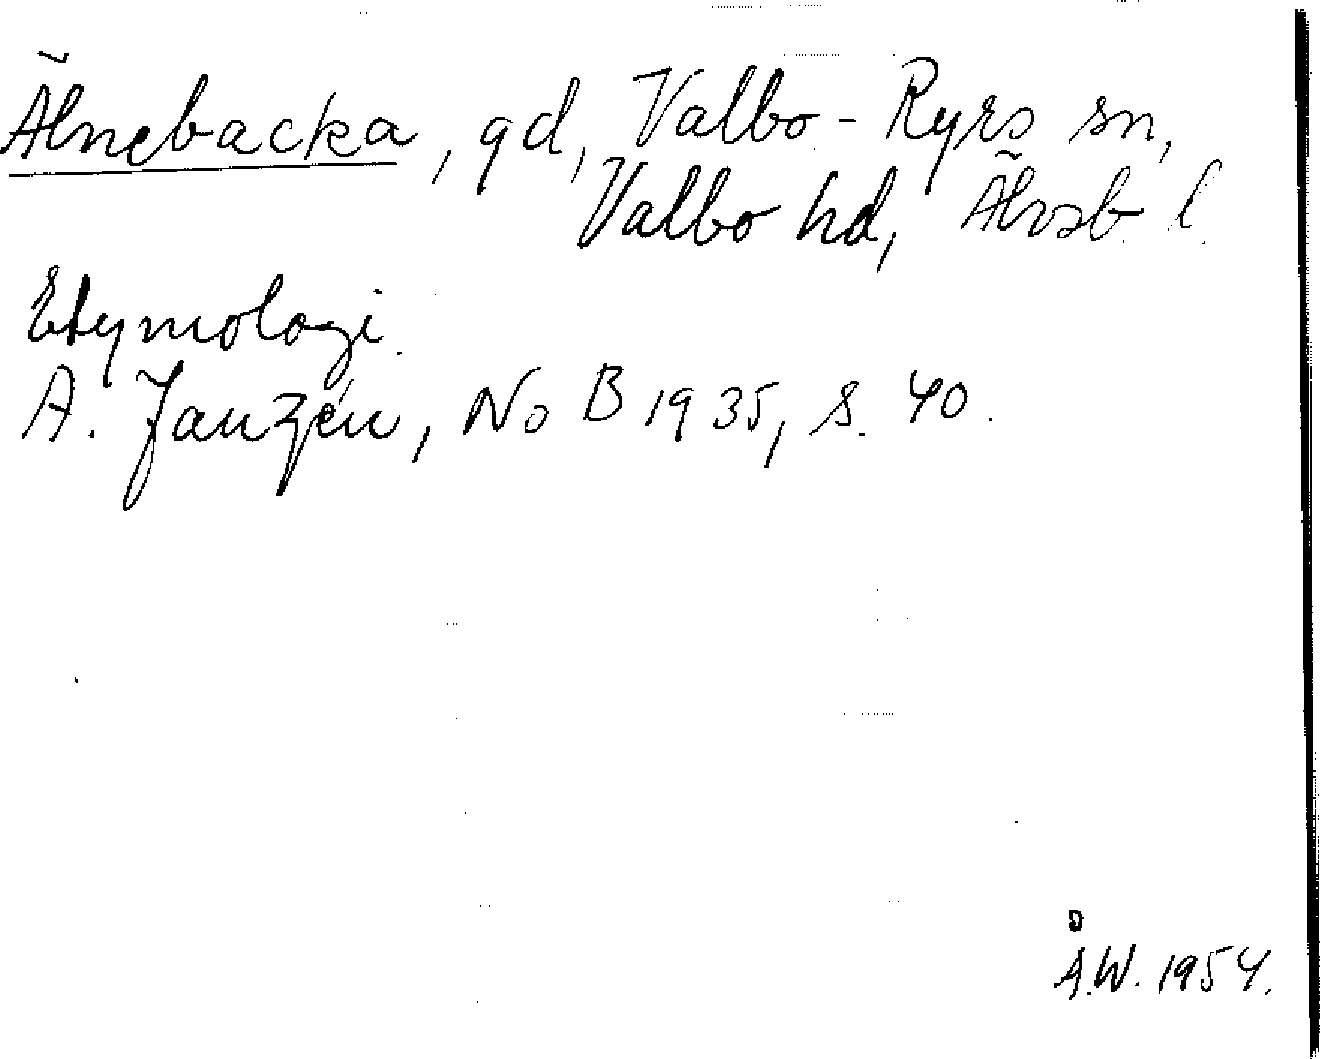 Älnebacka, gd, Valbo-Ryrs sn,
Valbo hd, Älvsb. l.
Etymologi.
A. Janzén, NoB 1935, s. 40.
Å.W. 1954.